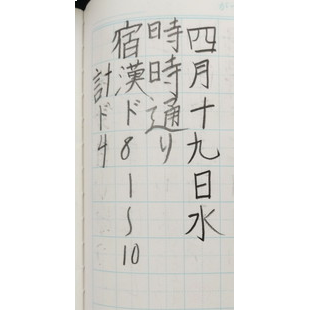 四月十九日水
時時通り
宿漢ド81〜10
計ド4